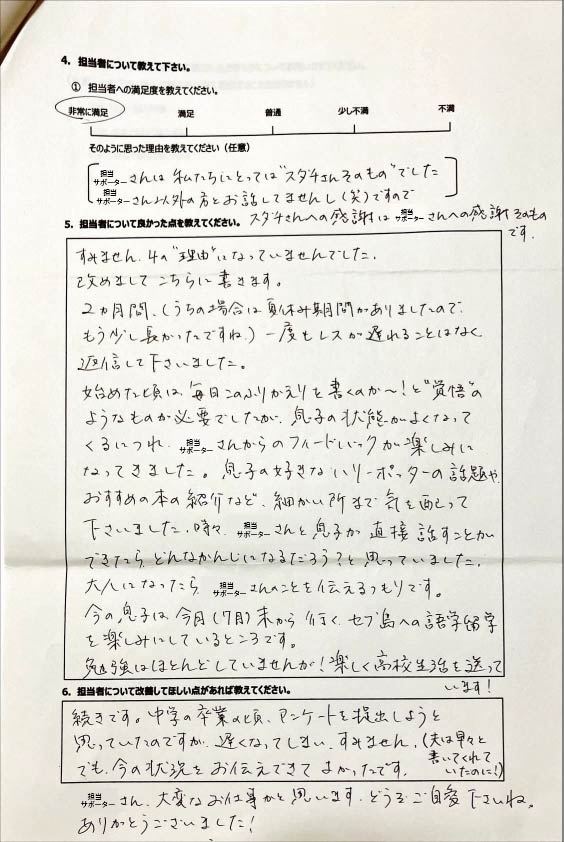 4．担当者について教えて下さい。
① 担当者への満足度を教えてください。
非常に満足 満足 普通 少し不満 不満
そのように思った理由を教えてください（任意）
担当サポーターさんは私たちにとっては"スダチさんそのもの"でした
担当サポーターさん以外の方とお話してませんし(笑)ですので
スダチさんへの感謝は担当サポーターさんへの感謝そのものです。
5．担当者について良かった点を教えてください。
すみません、4の"理由"になっていませんでした。
改めましてこちらに書きます。
2ヵ月間、(うちの場合は夏休み期間がありましたので、
もう少し長かったですね。) 一度もレスが遅れることはなく
返信して下さいました。
始めた頃は、毎日このふりかえりを書くのか〜！と"覚悟"の
ようなものが必要でしたが、息子の状態がよくなって
くるにつれ、担当サポーターさんからのフィードバックが楽しみに
なってきました。息子の好きなハリーポッターの話題や
おすすめの本の紹介など、細かい所まで気を配って
下さいました。時々、担当サポーターさんと息子が直接話すことが
できたら、どんなかんじになるだろう？と思っていました。
大人になったら、担当サポーターさんのことを伝えるつもりです。
今の息子は、今月(7月)末から行く、セブ島への語学留学
を楽しみにしているところです。
勉強はほとんどしていませんが！楽しく高校生活を送って
います！
6．担当者について改善してほしい点があれば教えてください。
続きです。中学の卒業の頃、アンケートを提出しようと
思っていたのですが、遅くなってしまい、すみません。(夫は早々と
書いてくれていたのに！)
でも、今の状況をお伝えできてよかったです。
担当サポーターさん、大変なお仕事かと思います。どうぞご自愛下さいね。
ありがとうございました！